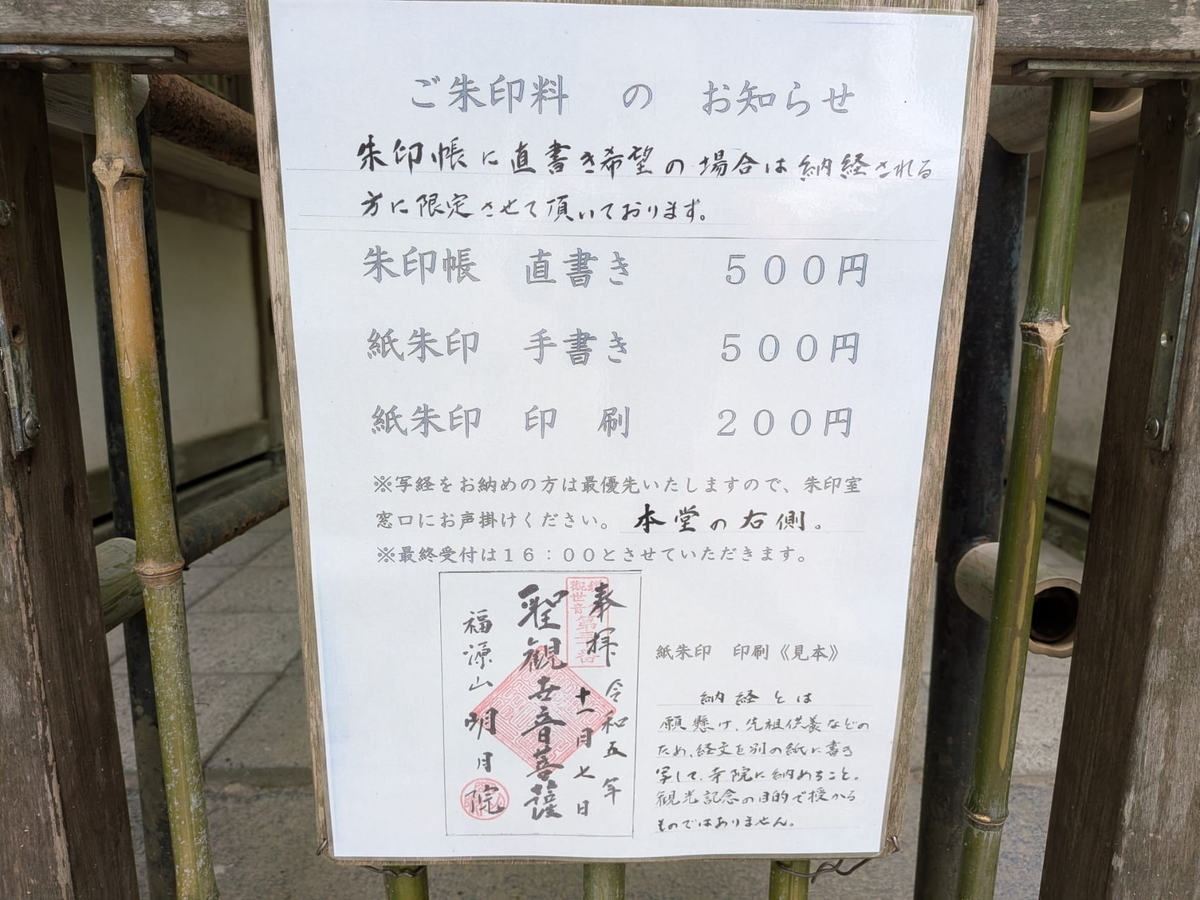 ご朱印料 の お知らせ
朱印帳に直書き希望の場合は納経される
方に限定させて頂いております。
朱印帳 直書き 500円
紙朱印 手書き 500円
紙朱印 印 刷 200円
※写経をお納めの方は最優先いたしますので、朱印室
窓口にお声掛けください。 本堂の右側。
※最終受付は16:00とさせていただきます。
奉拝
令和五年
十一月七日
聖観世音菩薩
福源山
明月院
紙朱印 印刷《見本》
納経とは
願懸け、先祖供養などの
ため、経文を別の紙に書き
写して、寺院に納めること。
観光記念の目的で授かる
ものではありません。